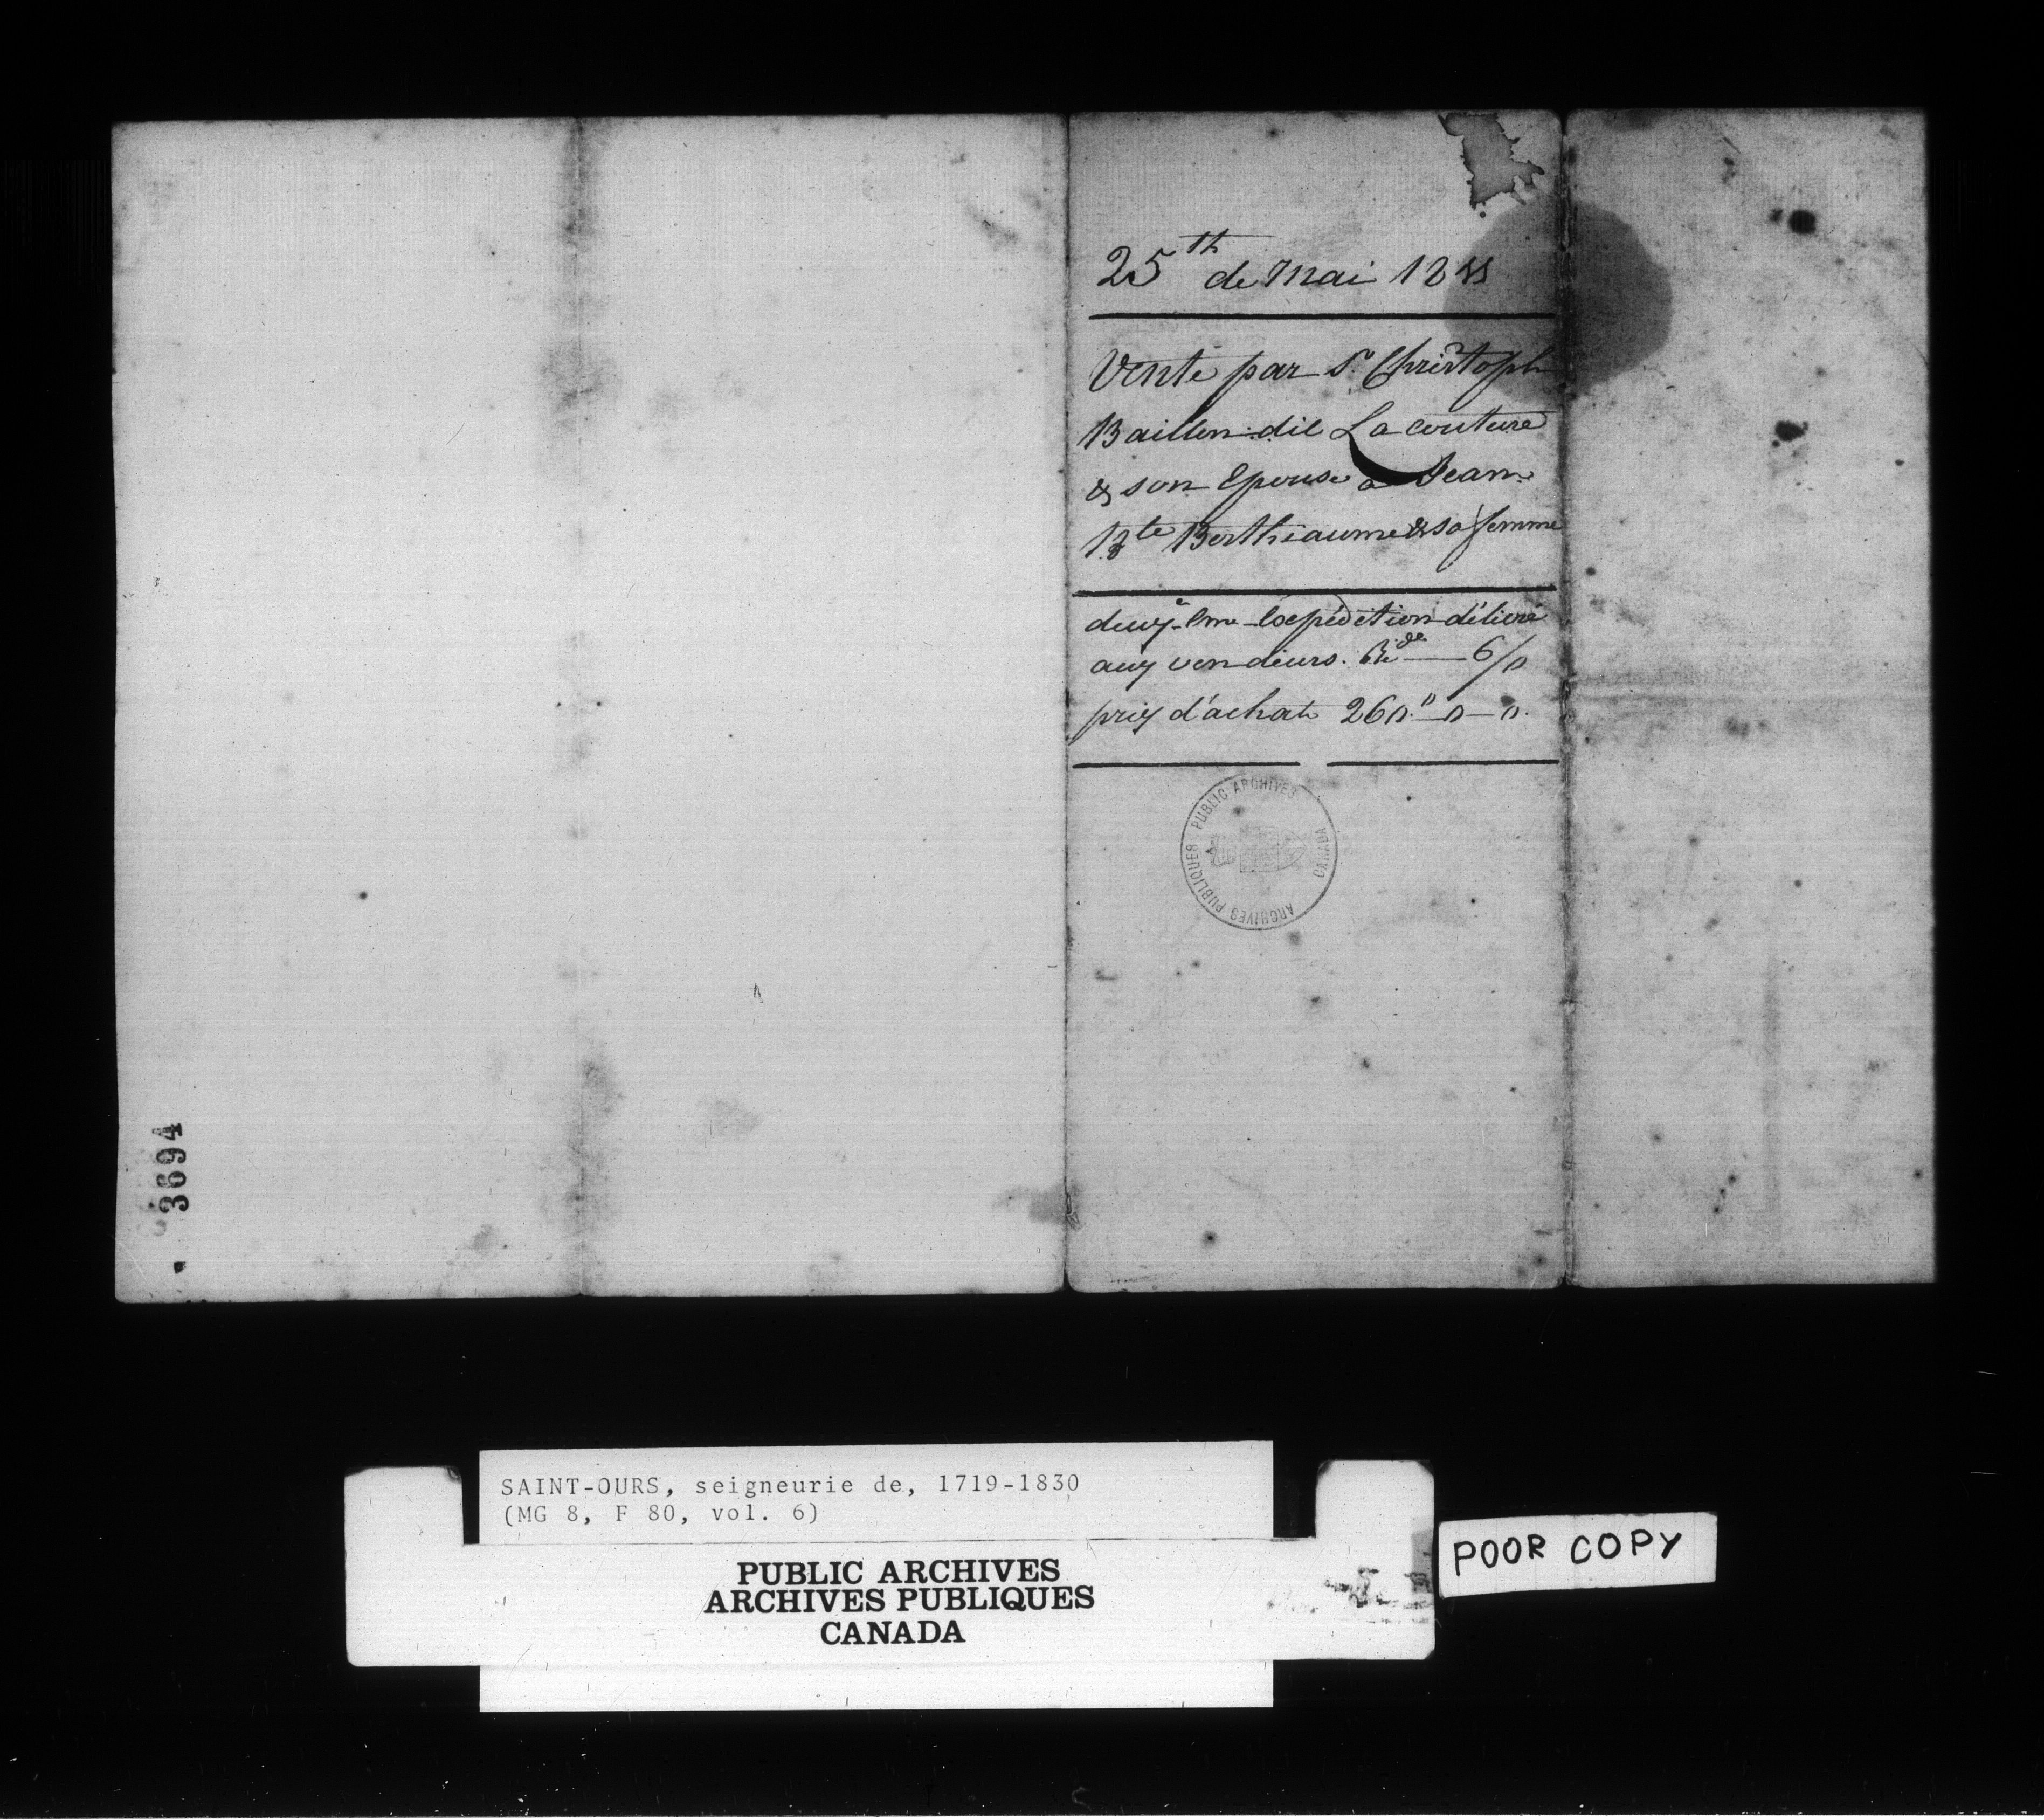 25th de Mai 1811
Vente par Sr. Christoph
Baillon dit La couture
& son Epouse a Jean
Bte Berthiaume & sa femme
deuxième Expédition délivré
aux vendeurs. 6/0
prix d'achat 260"_0_0.
PUBLIC ARCHIVES CANADA
ARCHIVES PUBLIQUES
3694
SAINT-OURS, seigneurie de, 1719-1830
(MG 8, F 80, vol. 6)
PUBLIC ARCHIVES
ARCHIVES PUBLIQUES
CANADA
POOR COPY